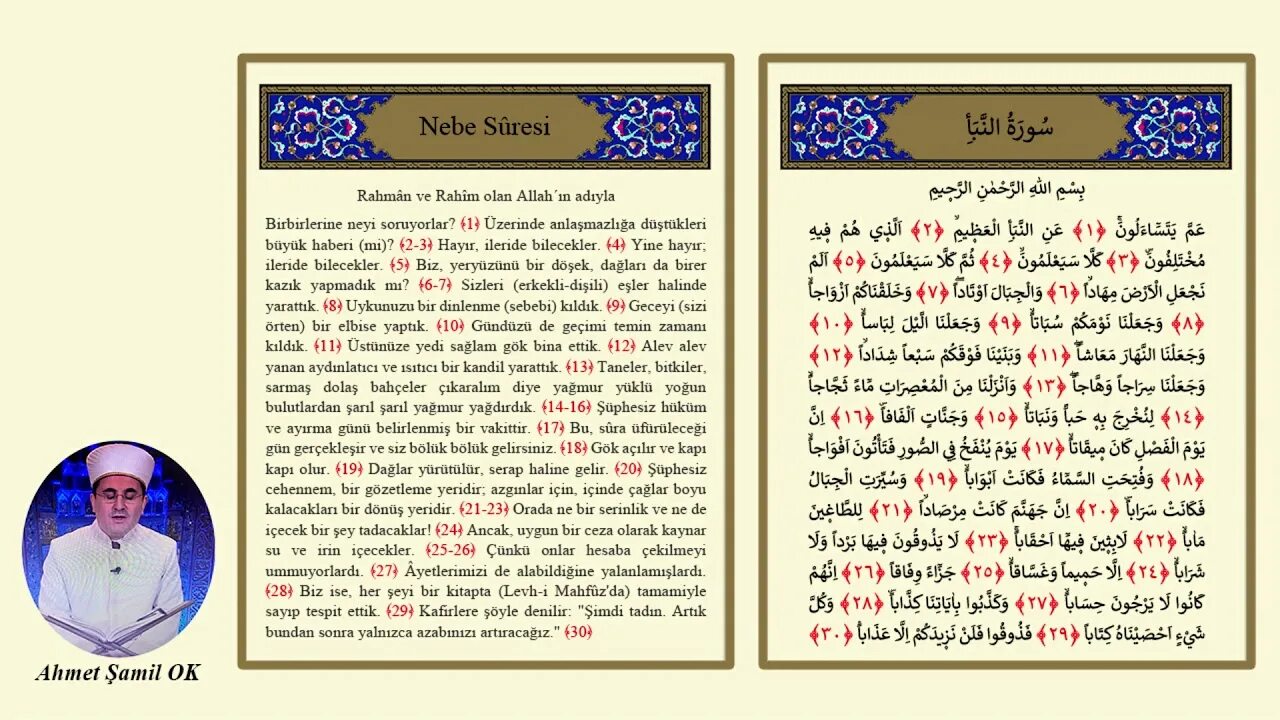 Nebe Sûresi
Rahmân ve Rahîm olan Allah´ın adıyla
Birbirlerine neyi soruyorlar? ﴾1﴿ Üzerinde anlaşmazlığa düştükleri
büyük haberi (mi)? ﴾2-3﴿ Hayır, ileride bilecekler. ﴾4﴿ Yine hayır;
ileride bilecekler. ﴾5﴿ Biz, yeryüzünü bir döşek, dağları da birer
kazık yapmadık mı? ﴾6-7﴿ Sizleri (erkekli-dişili) eşler halinde
yarattık. ﴾8﴿ Uykunuzu bir dinlenme (sebebi) kıldık. ﴾9﴿ Geceyi (sizi
örten) bir elbise yaptık. ﴾10﴿ Gündüzü de geçimi temin zamanı
kıldık. ﴾11﴿ Üstünüze yedi sağlam gök bina ettik. ﴾12﴿ Alev alev
yanan aydınlatıcı ve ısıtıcı bir kandil yarattık. ﴾13﴿ Taneler, bitkiler,
sarmaş dolaş bahçeler çıkaralım diye yağmur yüklü yoğun
bulutlardan şarıl şarıl yağmur yağdırdık. ﴾14-16﴿ Şüphesiz hüküm
ve ayırma günü belirlenmiş bir vakittir. ﴾17﴿ Bu, sûra üfürüleceği
gün gerçekleşir ve siz bölük bölük gelirsiniz. ﴾18﴿ Gök açılır ve kapı
kapı olur. ﴾19﴿ Dağlar yürütülür, serap haline gelir. ﴾20﴿ Şüphesiz
cehennem, bir gözetleme yeridir; azgınlar için, içinde çağlar boyu
kalacakları bir dönüş yeridir. ﴾21-23﴿ Orada ne bir serinlik ve ne de
içecek bir şey tadacaklar! ﴾24﴿ Ancak, uygun bir ceza olarak kaynar
su ve irin içecekler. ﴾25-26﴿ Çünkü onlar hesaba çekilmeyi
ummuyorlardı. ﴾27﴿ Âyetlerimizi de alabildiğine yalanlamışlardı.
﴾28﴿ Biz ise, her şeyi bir kitapta (Levh-i Mahfûz'da) tamamiyle
sayıp tespit ettik. ﴾29﴿ Kafirlere şöyle denilir: "Şimdi tadın. Artık
bundan sonra yalnızca azabınızı artıracağız." ﴾30﴿
سُورَةُ النَّبَأِ
بِسْمِ اللهِ الرَّحْمٰنِ الرَّح۪يمِ
عَمَّ يَتَسَٓاءَلُونَۚ ﴿١﴾ عَنِ النَّبَأِ الْعَظ۪يمِۙ ﴿٢﴾ اَلَّذ۪ي هُمْ ف۪يهِ
مُخْتَلِفُونَۜ ﴿٣﴾ كَلَّا سَيَعْلَمُونَۙ ﴿٤﴾ ثُمَّ كَلَّا سَيَعْلَمُونَ ﴿٥﴾ اَلَمْ
نَجْعَلِ الْاَرْضَ مِهَاداًۙ ﴿٦﴾ وَالْجِبَالَ اَوْتَاداًۖ ﴿٧﴾ وَخَلَقْنَاكُمْ اَزْوَاجاًۙ
﴿٨﴾ وَجَعَلْنَا نَوْمَكُمْ سُبَاتاًۙ ﴿٩﴾ وَجَعَلْنَا الَّيْلَ لِبَاساًۙ ﴿١٠﴾
وَجَعَلْنَا النَّهَارَ مَعَاشاًۖ ﴿١١﴾ وَبَنَيْنَا فَوْقَكُمْ سَبْعاً شِدَاداًۙ ﴿١٢﴾
وَجَعَلْنَا سِرَاجاً وَهَّاجاًۖ ﴿١٣﴾ وَاَنْزَلْنَا مِنَ الْمُعْصِرَاتِ مَٓاءً ثَجَّاجاًۙ
﴿١٤﴾ لِنُخْرِجَ بِه۪ حَباًّ وَنَبَاتاًۙ ﴿١٥﴾ وَجَنَّاتٍ اَلْفَافاًۜ ﴿١٦﴾ اِنَّ
يَوْمَ الْفَصْلِ كَانَ م۪يقَاتاًۙ ﴿١٧﴾ يَوْمَ يُنْفَخُ فِي الصُّورِ فَتَأْتُونَ اَفْوَاجاًۙ
﴿١٨﴾ وَفُتِحَتِ السَّمَٓاءُ فَكَانَتْ اَبْوَاباًۙ ﴿١٩﴾ وَسُيِّرَتِ الْجِبَالُ
فَكَانَتْ سَرَاباًۜ ﴿٢٠﴾ اِنَّ جَهَنَّمَ كَانَتْ مِرْصَاداًۙ ﴿٢١﴾ لِلطَّاغ۪ينَ
مَاٰباًۙ ﴿٢٢﴾ لَابِث۪ينَ ف۪يهَٓا اَحْقَاباًۚ ﴿٢٣﴾ لَا يَذُوقُونَ ف۪يهَا بَرْداً وَلَا
شَرَاباًۙ ﴿٢٤﴾ اِلَّا حَم۪يماً وَغَسَّاقاًۙ ﴿٢٥﴾ جَزَٓاءً وِفَاقاًۜ ﴿٢٦﴾ اِنَّهُمْ
كَانُوا لَا يَرْجُونَ حِسَاباًۙ ﴿٢٧﴾ وَكَذَّبُوا بِاٰيَاتِنَا كِذَّاباًۜ ﴿٢٨﴾ وَكُلَّ
شَيْءٍ اَحْصَيْنَاهُ كِتَاباًۙ ﴿٢٩﴾ فَذُوقُوا فَلَنْ نَز۪يدَكُمْ اِلَّا عَذَاباً۟ ﴿٣٠﴾
Ahmet Şamil OK